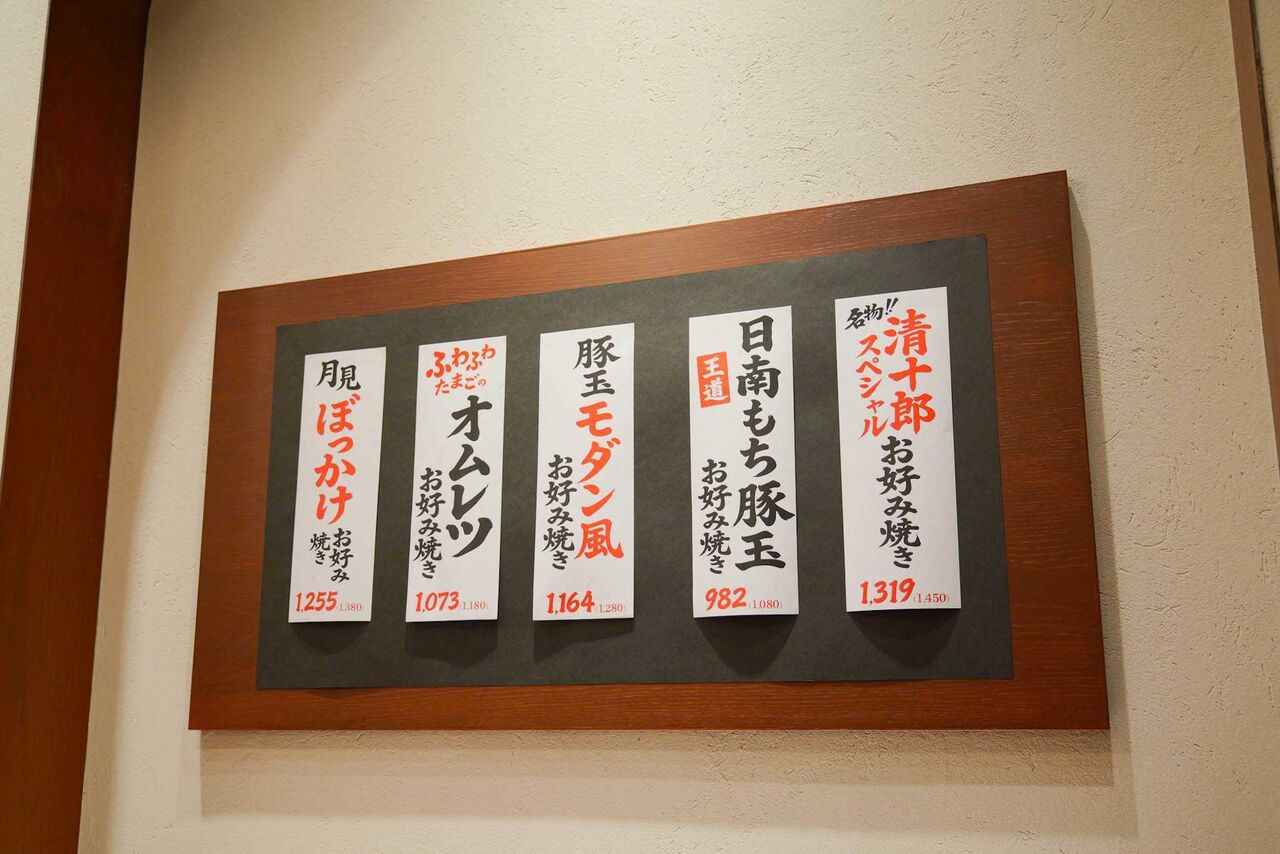 名物!!
清十郎
スペシャル
お好み焼き
1,319(1.450)
日南もち豚玉
王道
お好み焼き
982(1.080)
豚玉モダン風
お好み焼き
1,164(1.280)
ふわふわ
たまごの
オムレツ
お好み焼き
1,073(1.180)
月見
ぼっかけ
お好み
焼き
1,255(1.380)